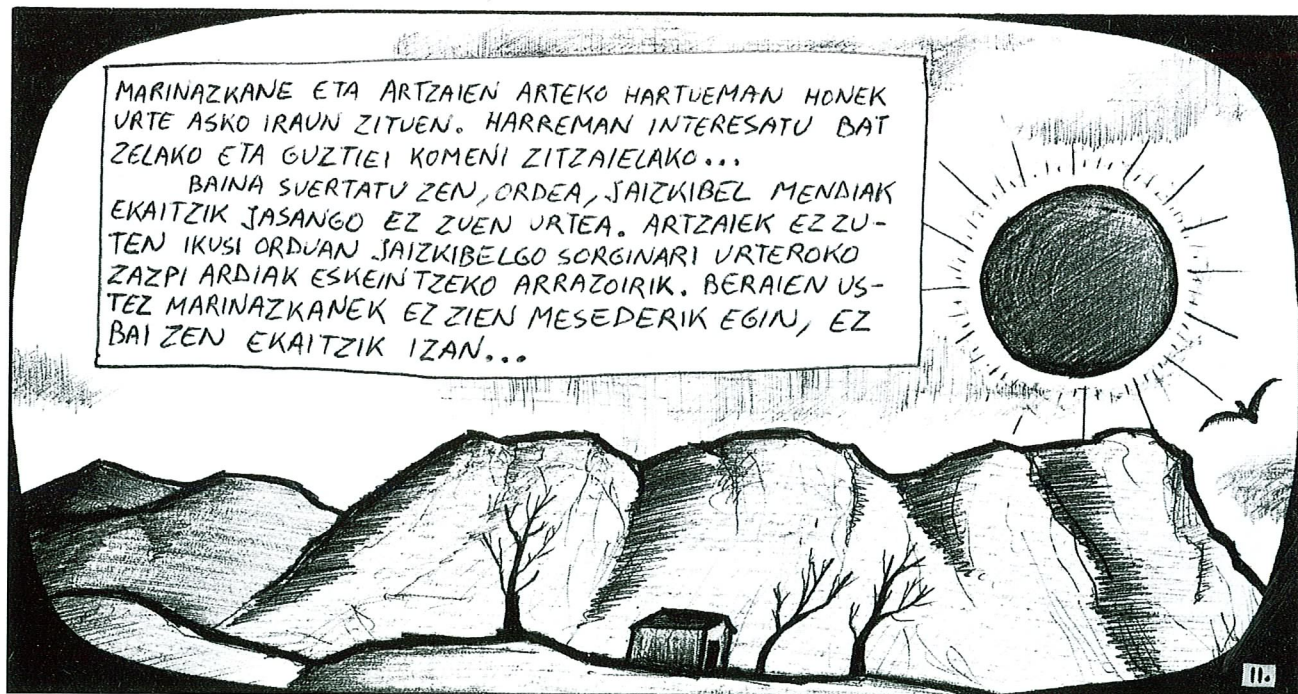 MARINAZKANE ETA ARTZAIEN ARTEKO HARTUEMAN HONEK
URTE ASKO IRAUN ZITUEN. HARREMAN INTERESATU BAT
ZELAKO ETA GUZTIEI KOMENI ZITZAIELAKO...
BAINA SUERTATU ZEN, ORDEA, JAIZKIBEL MENDIAK
EKAITZIK JASANGO EZ ZUEN URTEA. ARTZAIEK EZ ZU-
TEN IKUSI ORDUAN JAIZKIBELGO SORGINARI URTEROKO
ZAZPI ARDIAK ESKEINTZEKO ARRAZOIRIK. BERAIEN US-
TEZ MARINAZKANEK EZ ZIEN MESEDERIK EGIN, EZ
BAI ZEN EKAITZIK IZAN...
11.